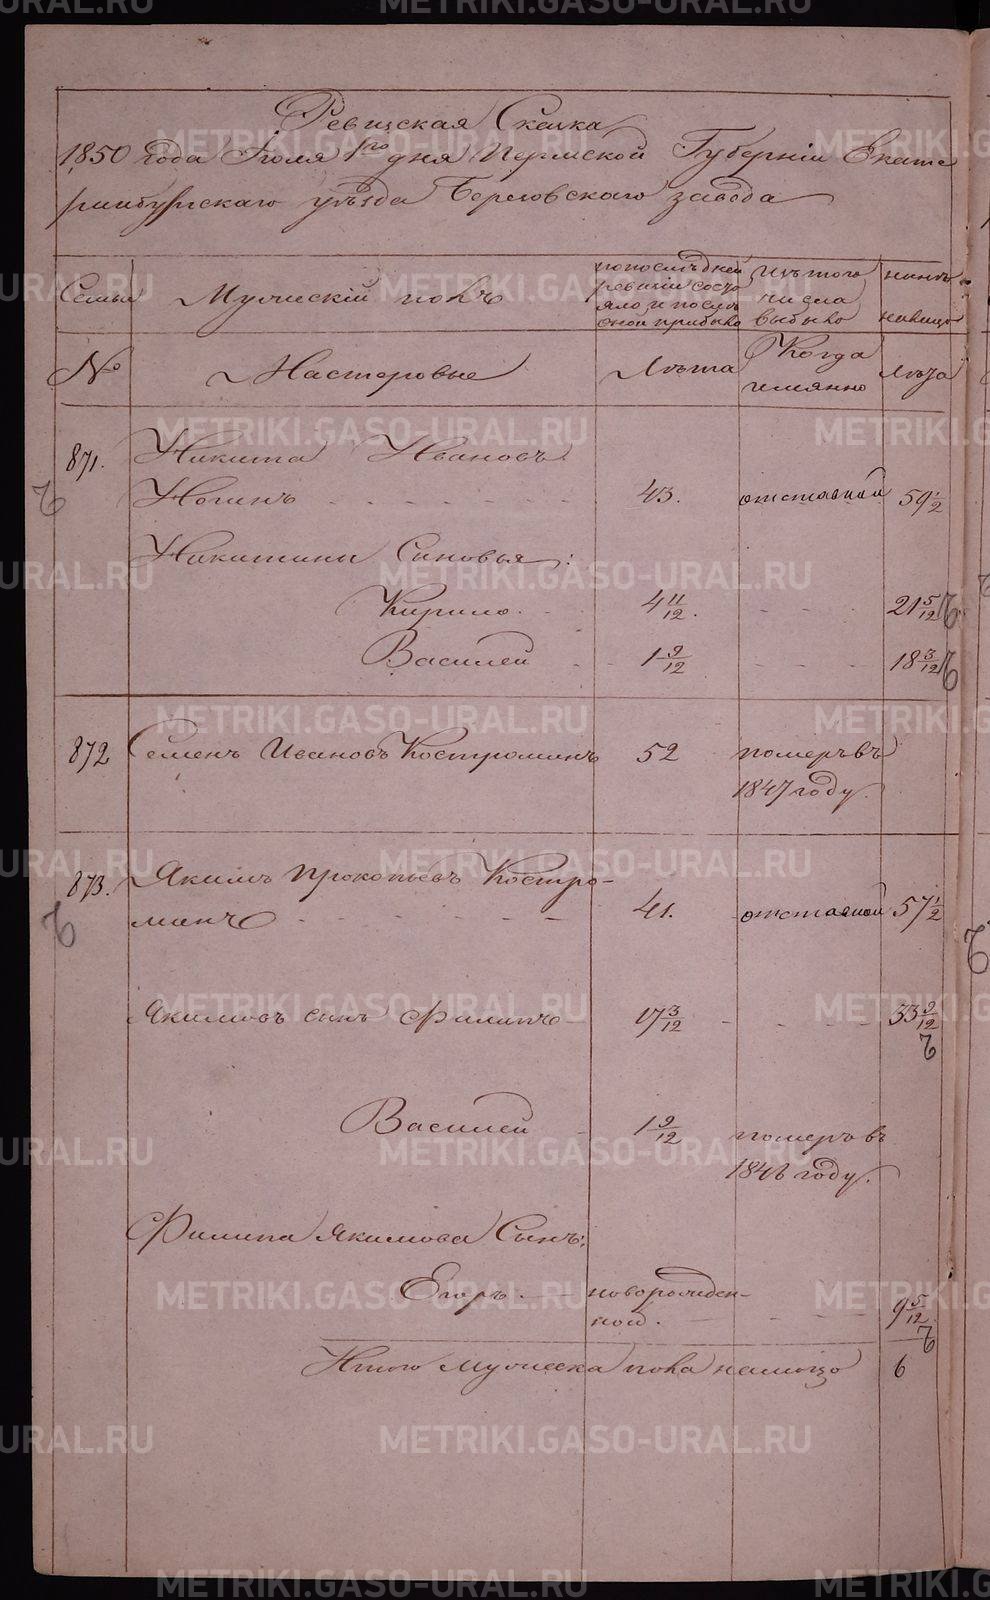 Ревизская Сказка
1850 года Іюля 1го дня Пермской Губерніи Екате
ринбургскаго уѣзда Березовскаго завода
Семьи
Мужескій полъ
по последней ревизіи состояло и после оной прибыло
изъ того числа выбыло
нынѣ на лицо
№
Мастеровые
Лѣта
Когда имянно
Лѣта
871.
Никита Ивановъ
43. отставной 59 1/2
Никитины Сыновья:
Кирило 4 11/12. 21 5/12
Василей 1 9/12 18 3/12
872 Семенъ Ивановъ Костроминъ 52 померъ въ
1847 году.
873. Якимъ Прокопьевъ Костро-
минъ 41. отставной 57 1/2
Якимовъ сынъ Филипъ 17 3/12 33 9/12
Василей 1 9/12 померъ въ
году.
Филипа Якимова Сынъ:
Егоръ новорожден-
ной. 9 5/12
Итого мужеска пола на лицо 6
METRIKI.GASO-URAL.RU